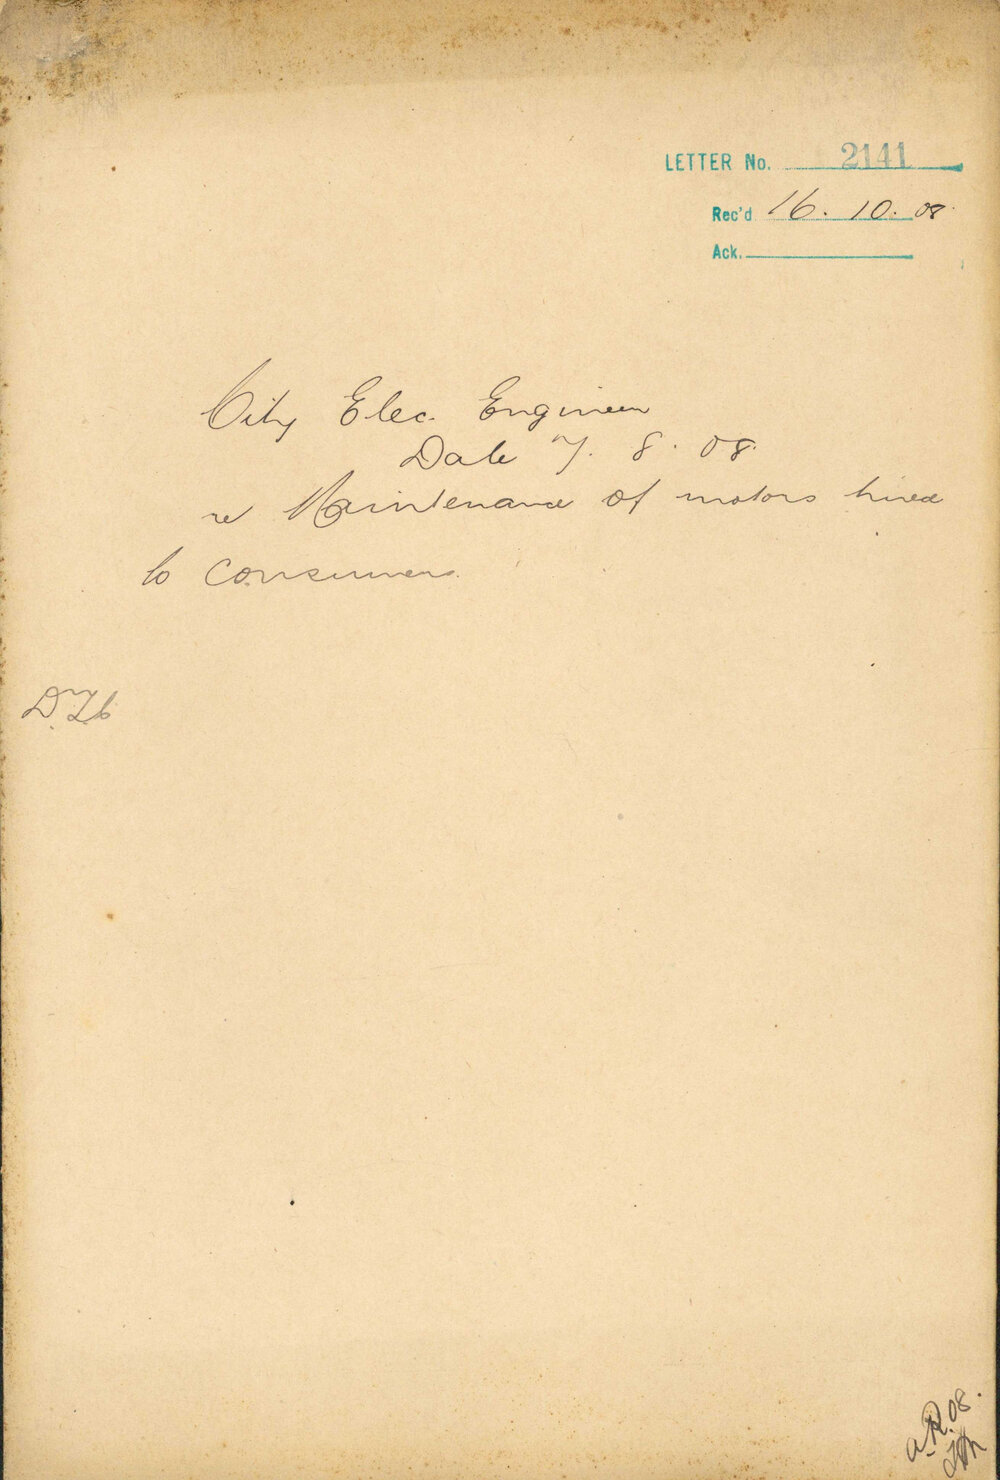 LETTER No. 2141
Rec'd 16. 10. 08.
Ack.
City Elec. Engineer
Date 7. 8. 08.
re Maintenance of motors hired
to Consumers.